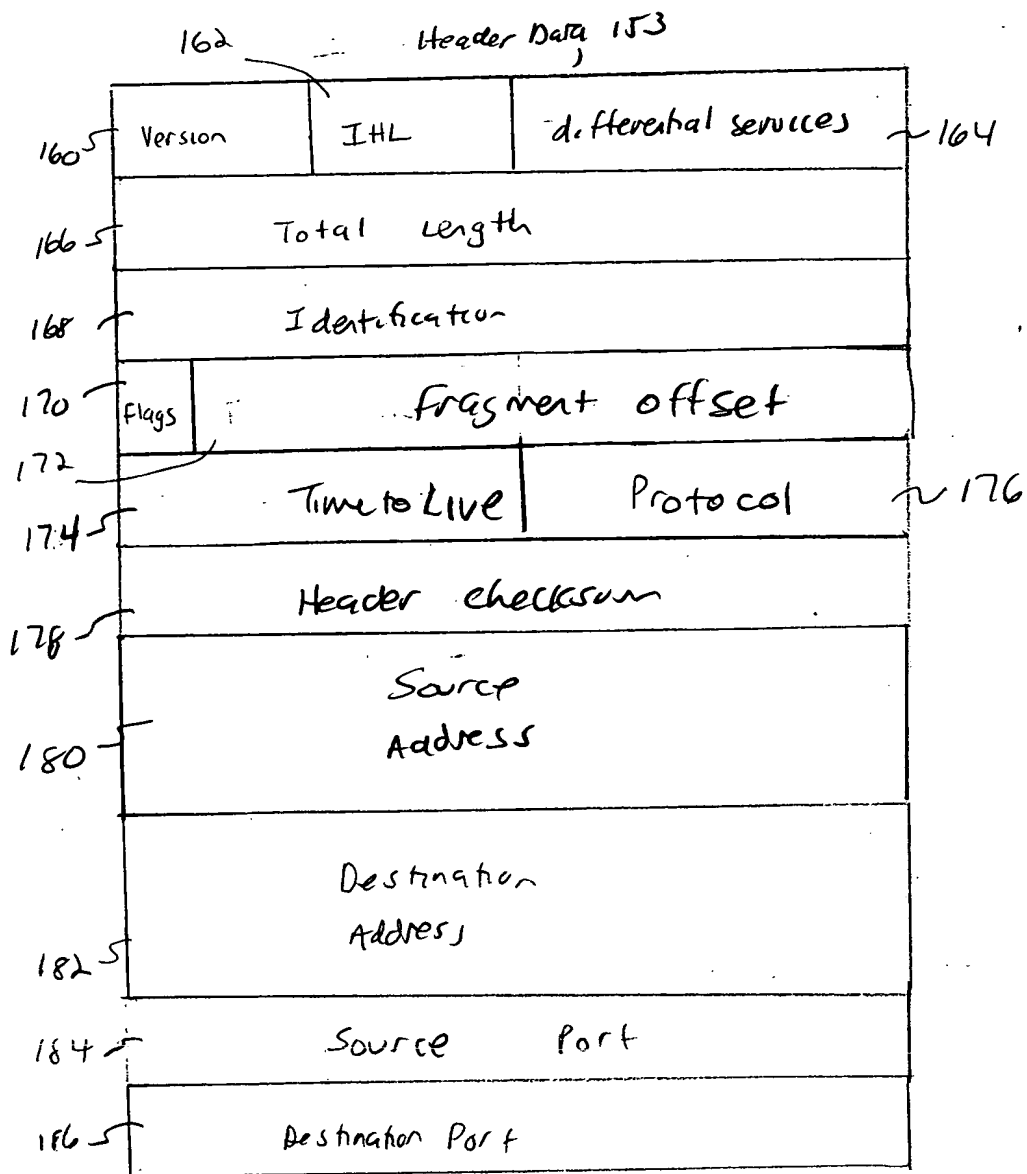 162 Header Data 153
160 Version IHL differential services 164
166 Total Length
168 Identification
170 Flags Fragment offset
172
174 Time to Live Protocol 176
178 Header checksum
180 Source
Address
Destination
Address
182
184 Source Port
186 Destination Port